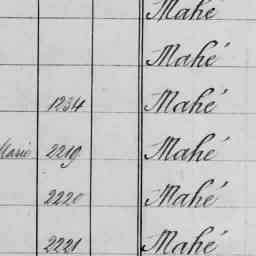 Mahé
Mahé
1234 Mahé
Marie 2219 Mahé
2220 Mahé
2221 Mahé